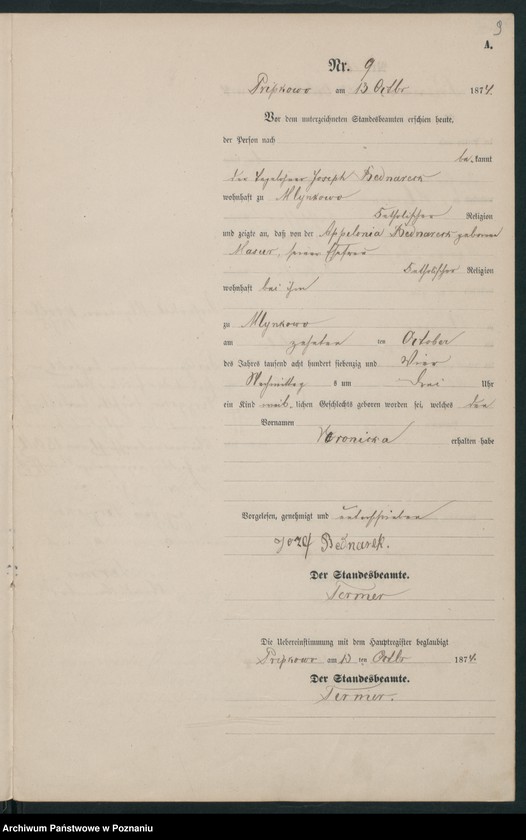 9
A.
Nr. 9
Pripkowo am 13 Octbr 1874.
Vor dem unterzeichneten Standesbeamten erschien heute,
der Person nach
be kannt
der Tagelöhner Joseph Bednareck
wohnhaft zu Mlynkowo
katholischer Religion
und zeigte an, daß von der Appelonia Bednareck geborene
Masur, seiner Ehefrau
katholischer Religion
wohnhaft bei ihm
zu Mlynkowo
am zehnten ten October
des Jahres tausend acht hundert siebenzig und vier
Nachmittag s um drei Uhr
ein Kind weib lichen Geschlechts geboren worden sei, welches den
Vornamen
Veronicka erhalten habe
Vorgelesen, genehmigt und unterschrieben
Jozef Bednarek.
Der Standesbeamte.
Termer
Die Uebereinstimmung mit dem Hauptregister beglaubigt
Pripkowo am 13 ten Octbr 1874.
Der Standesbeamte.
Termer.
Archiwum Państwowe w Poznaniu